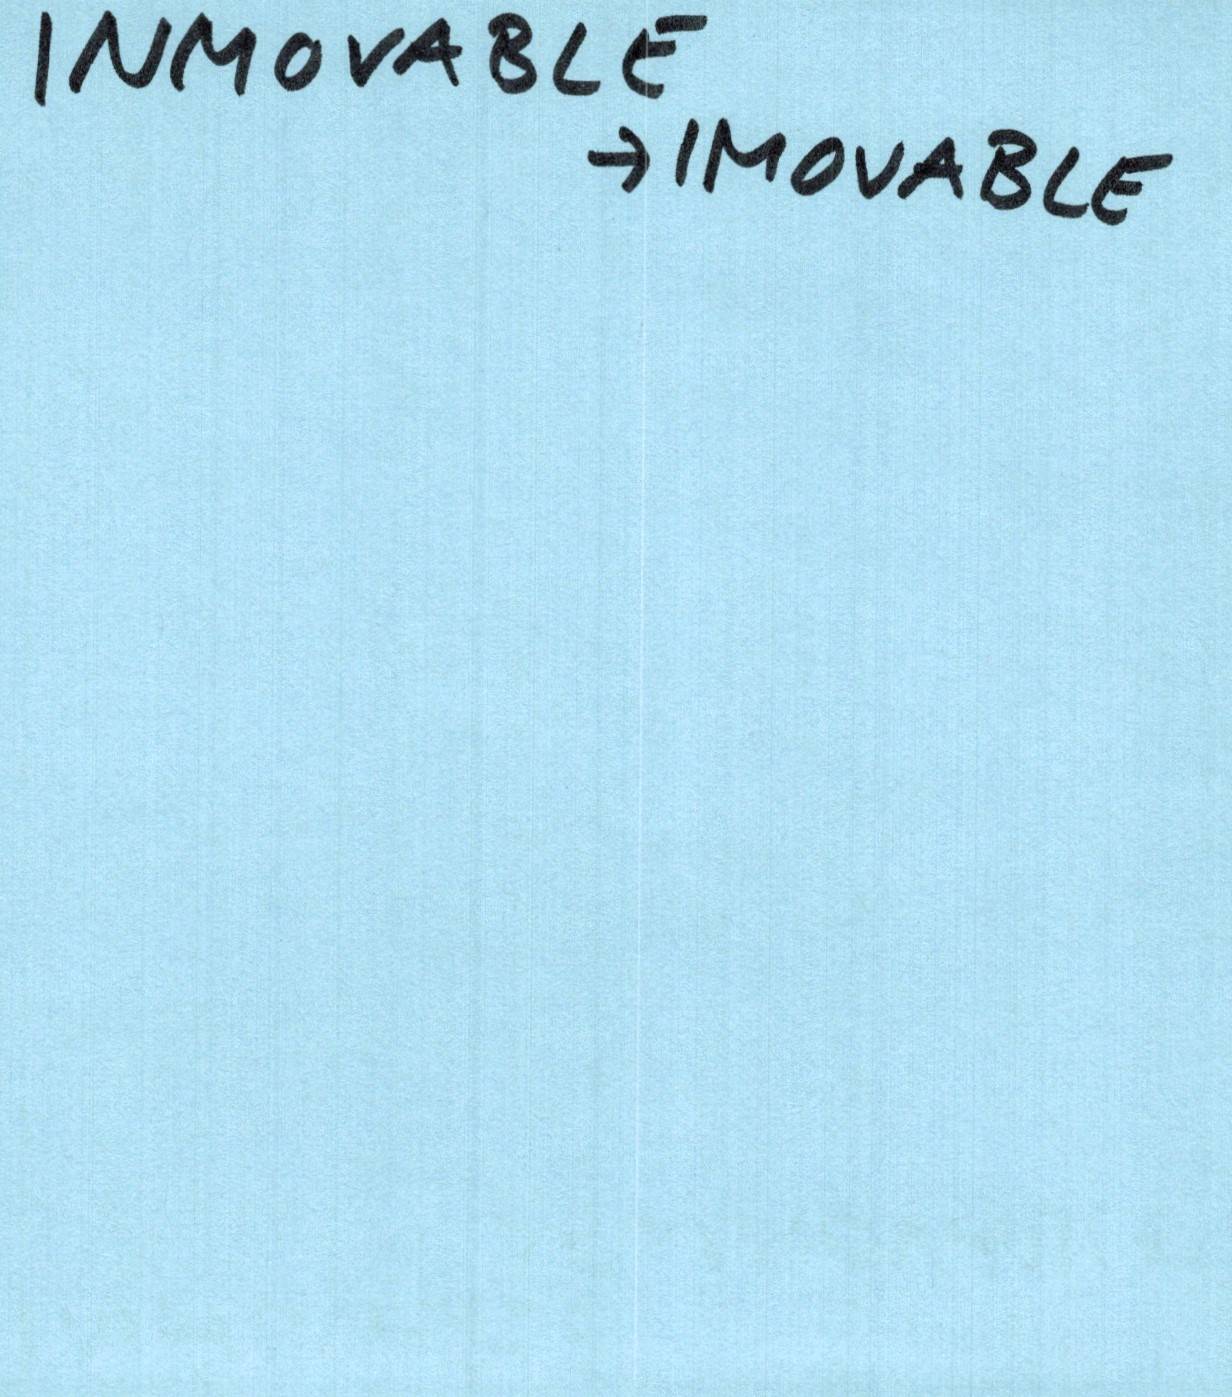 INMOVABLE
→IMOVABLE